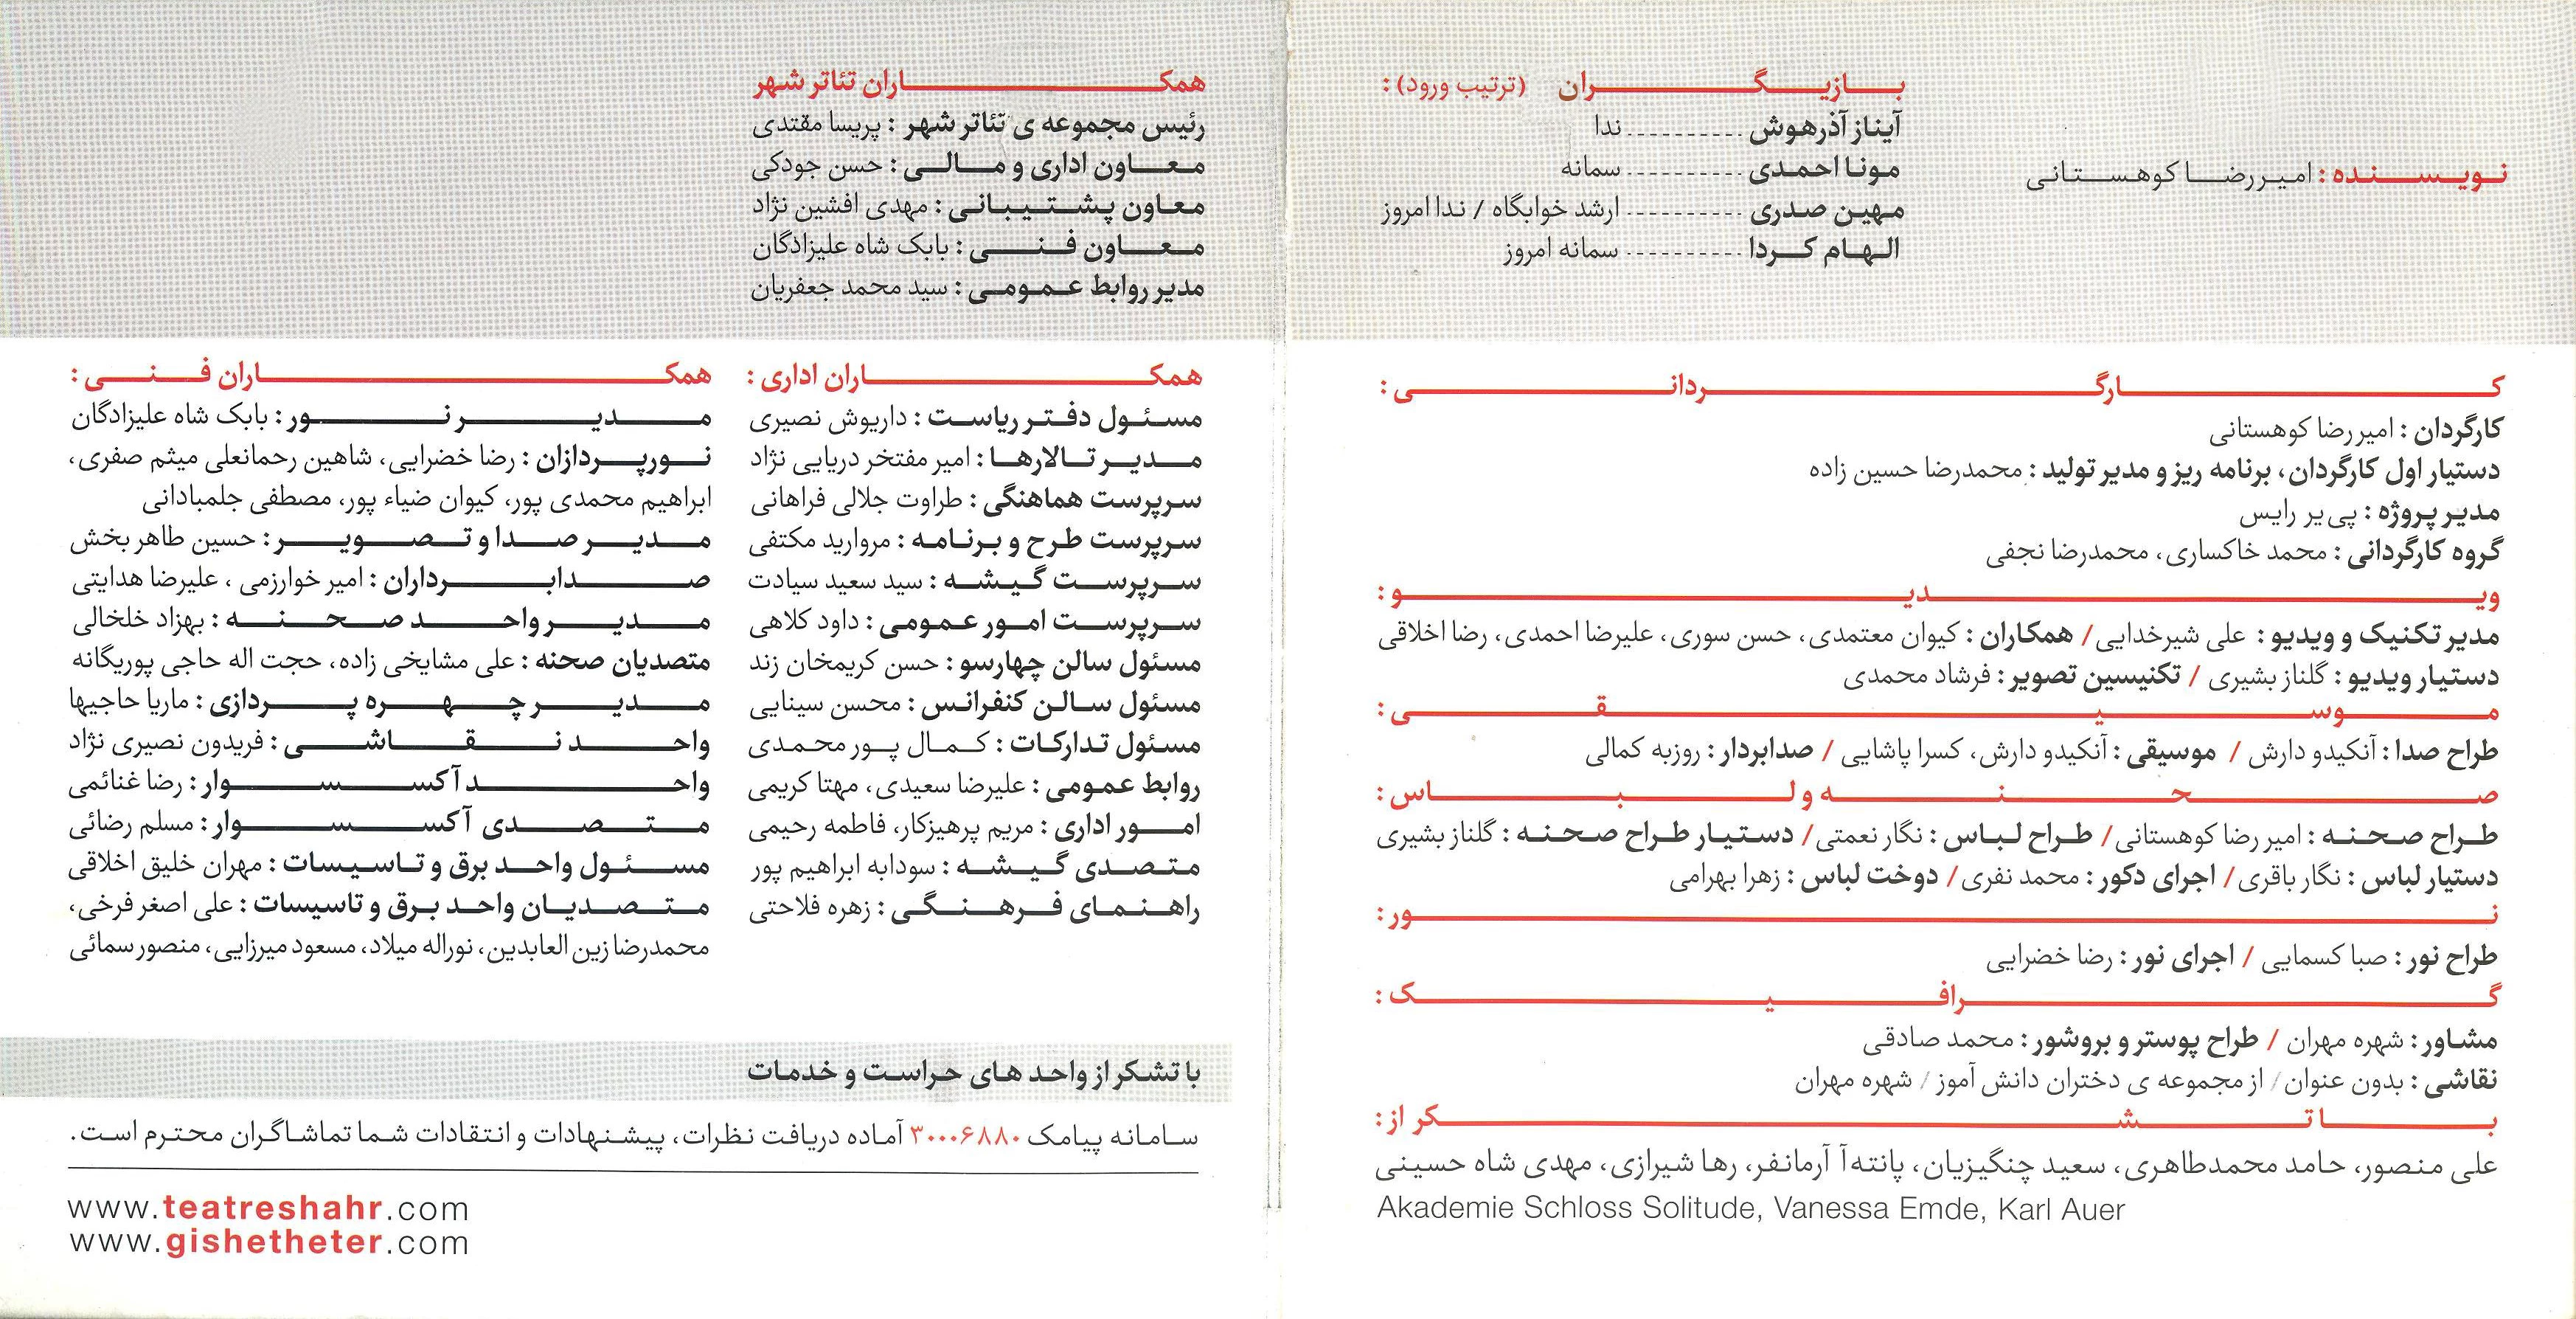 نویسنده : امیررضا کوهستانی
بازیگران (ترتیب ورود) :
آیناز آذرهوش ---------- ندا
مونا احمدی ---------- سمانه
مهین صدری ---------- ارشد خوابگاه / ندا امروز
الهام کردا ---------- سمانه امروز
کارگردانی :
کارگردان : امیررضا کوهستانی
دستیار اول کارگردان، برنامه ریز و مدیر تولید : محمدرضا حسین زاده
مدیر پروژه : پی یر رایس
گروه کارگردانی : محمد خاکساری، محمدرضا نجفی
ویدیو :
مدیر تکنیک و ویدیو : علی شیرخدایی / همکاران : کیوان معتمدی، حسن سوری، علیرضا احمدی، رضا اخلاقی
دستیار ویدیو : گلناز بشیری / تکنیسین تصویر : فرشاد محمدی
موسیقی :
طراح صدا : آنکیدو دارش / موسیقی : آنکیدو دارش، کسرا پاشایی / صدابردار : روزبه کمالی
صحنه و لباس :
طراح صحنه : امیررضا کوهستانی / طراح لباس : نگار نعمتی / دستیار طراح صحنه : گلناز بشیری
دستیار لباس : نگار باقری / اجرای دکور : محمد نفری / دوخت لباس : زهرا بهرامی
نور :
طراح نور : صبا کسمایی / اجرای نور : رضا خضرایی
گرافیک :
مشاور : شهره مهران / طراح پوستر و بروشور : محمد صادقی
نقاشی : بدون عنوان / از مجموعه ی دختران دانش آموز / شهره مهران
با تشکر از :
علی منصور، حامد محمدطاهری، سعید چنگیزیان، پانته آ آرمانفر، رها شیرازی، مهدی شاه حسینی
Akademie Schloss Solitude, Vanessa Emde, Karl Auer
همکاران تئاتر شهر
رئیس مجموعه ی تئاتر شهر : پریسا مقتدی
معاون اداری و مالی : حسن جودکی
معاون پشتیبانی : مهدی افشین نژاد
معاون فنی : بابک شاه علیزادگان
مدیر روابط عمومی : سید محمد جعفریان
همکاران اداری :
مسئول دفتر ریاست : داریوش نصیری
مدیر تالارها : امیر مفتخر دریایی نژاد
سرپرست هماهنگی : طراوت جلالی فراهانی
سرپرست طرح و برنامه : مروارید مکتفی
سرپرست گیشه : سید سعید سیادت
سرپرست امور عمومی : داود کلاهی
مسئول سالن چهارسو : حسن کریمخان زند
مسئول سالن کنفرانس : محسن سینایی
مسئول تدارکات : کمال پور محمدی
روابط عمومی : علیرضا سعیدی، مهتا کریمی
امور اداری : مریم پرهیزکار، فاطمه رحیمی
متصدی گیشه : سودابه ابراهیم پور
راهنمای فرهنگی : زهره فلاحتی
همکاران فنی :
مدیر نور : بابک شاه علیزادگان
نورپردازان : رضا خضرایی، شاهین رحمانعلی میثم صفری،
ابراهیم محمدی پور، کیوان ضیاء پور، مصطفی جلمبادانی
مدیر صدا و تصویر : حسین طاهر بخش
صدابرداران : امیر خوارزمی ، علیرضا هدایتی
مدیر واحد صحنه : بهزاد خلخالی
متصدیان صحنه : علی مشایخی زاده، حجت اله حاجی پوریگانه
مدیر چهره پردازی : ماریا حاجیها
واحد نقاشی : فریدون نصیری نژاد
واحد آکسسوار : رضا غنائمی
متصدی آکسسوار : مسلم رضائی
مسئول واحد برق و تاسیسات : مهران خلیق اخلاقی
متصدیان واحد برق و تاسیسات : علی اصغر فرخی،
محمدرضا زین العابدین، نوراله میلاد، مسعود میرزایی، منصور سمائی
با تشکر از واحد های حراست و خدمات
سامانه پیامک ۳۰۰۰۶۸۸۰ آماده دریافت نظرات، پیشنهادات و انتقادات شما تماشاگران محترم است.
www.teatreshahr.com
www.gishetheter.com